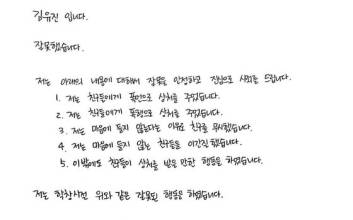 김유진 입니다.
잘못했습니다.
저는 아래의 내용에 대해서 잘못을 인정하고 진심으로 사죄를 드립니다.
1. 저는 친구들에게 폭언으로 상처를 주었습니다.
2. 저는 친구들에게 폭행으로 상처를 주었습니다.
3. 저는 마음에 들지 않는다는 이유로 친구를 무시했습니다.
4. 저는 마음에 들지 않는 친구들을 이간질 했습니다.
5. 이밖에도 친구들이 상처를 받을 만한 행동을 하였습니다.
저는 학창시절 위와 같은 잘못된 행동을 하였습니다.